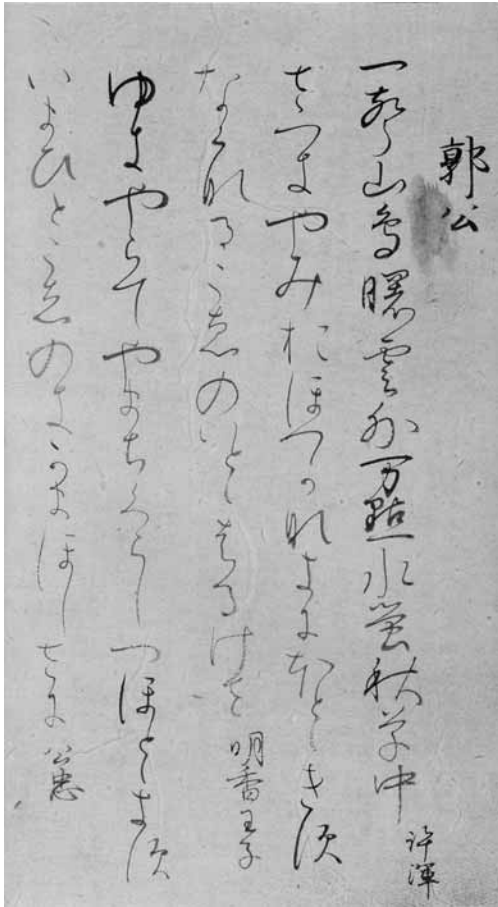 郭公
一聲山鳥曙雲外万點水螢秋草中 許渾
さつきやみおほつかなきにほとゝきす
なくなるこゑのいとゝはるけさ 明香王子
ゆきやらてやまちくらしつほとゝきす
いまひとこゑのきかまほしさに 公忠